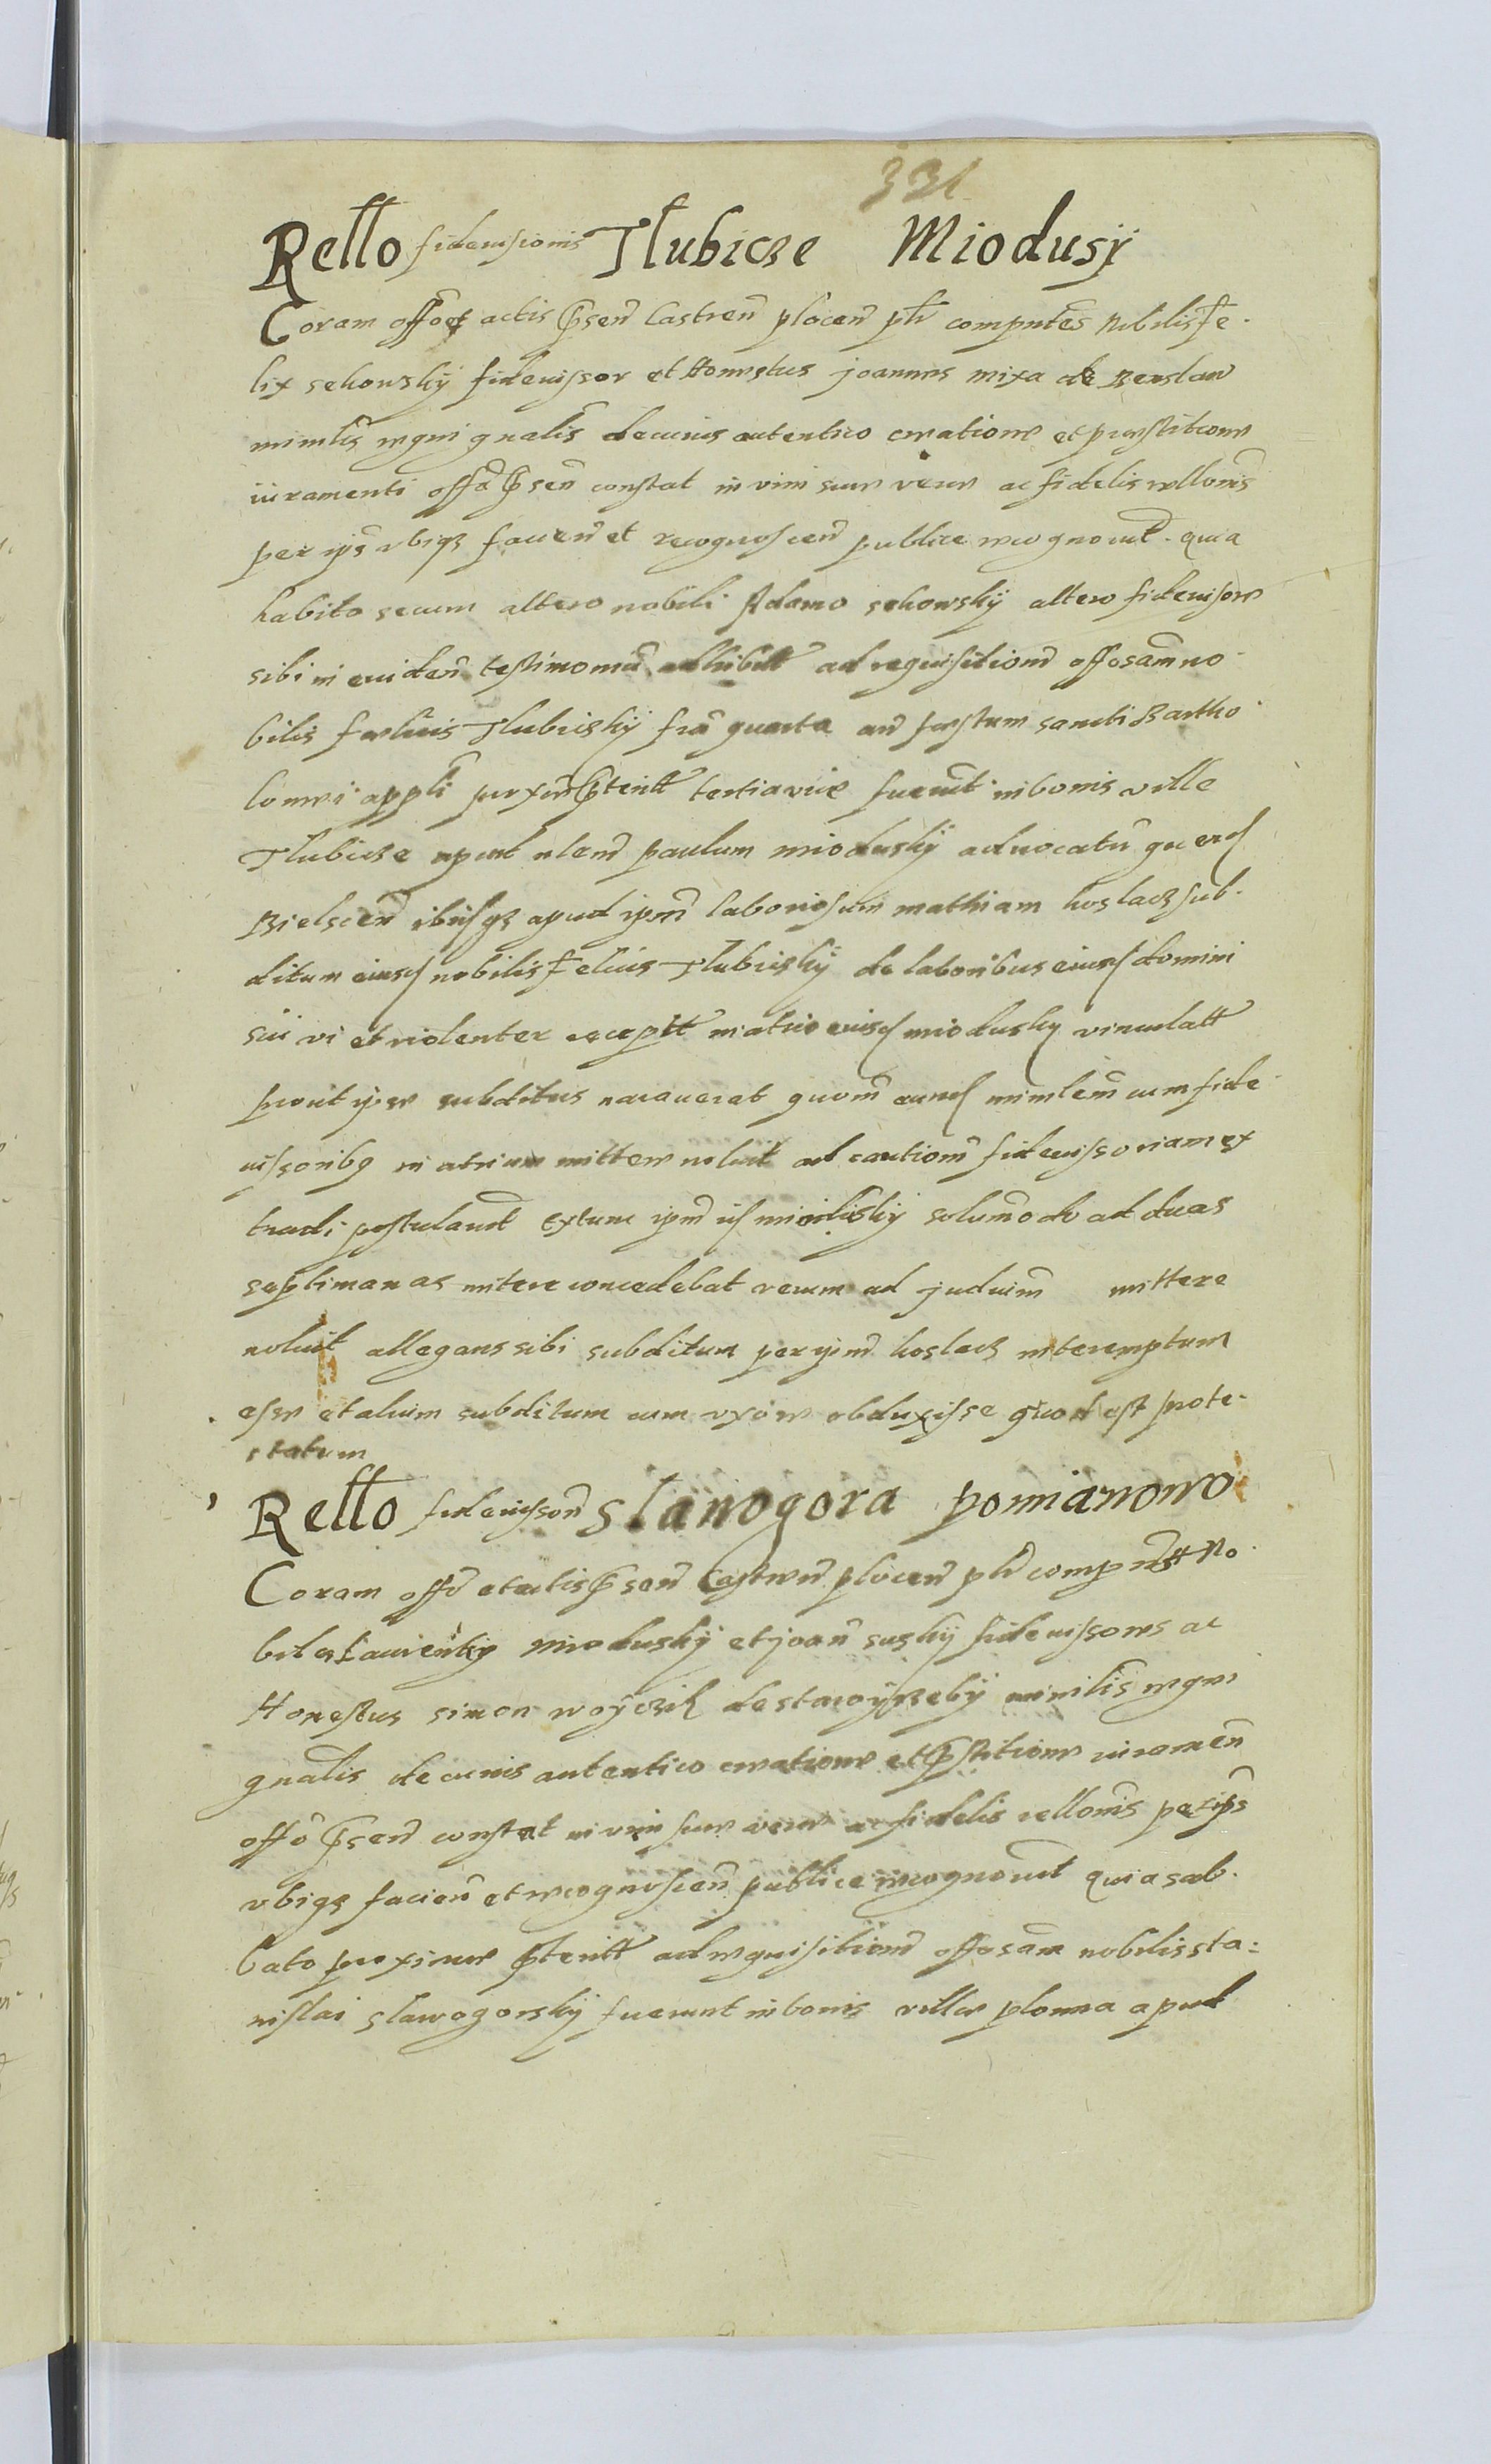 331
Rello fideiussionis Tlubicze Miodusÿ
Coram offo et actis psen Castren plocen plr comparntes Nobilis fe-
lix sekowskÿ fideiussor et Honestus joannes mixa de Bereslaw
minilis regni gnalis de cuius autentico creatione et prestitione
iuramenti offo psen constat in vim sue vere ac fidelis rellonis
per ips vbiqz faciend et recognoscend publice recognouit. quia
habito secum altero nobili Adamo sekowskÿ altero fideiussore
sibi in euiden testimoniu adhibit ad requisitione offosam no-
bilis foelicis Tlubiczkÿ fria quarta an festum sancti Bartho-
lomei appli proxim pterit tertia vice fuerunt in bonis ville
Tlubicze apud nlem paulum mioduskÿ aduocatu
Bielscen ibiqz apud ipm laboriosum mathiam koslacz sub-
ditum eiusd nobilis felicis Tlubiczkÿ de laboribus eiusd domini
sui vi et violenter recept in atrio eiusd mioduskÿ vinculatt
prout ipse subditus narauerat quom eund minlem cum fide-
iussoribq in atrium mittere noluit ad cautione fideiussoriam ex
tradi postulaunt extunc ipm is mioduskÿ solumodo ad duas
septimanas mitere concedebat verum ad judicium mittere
noluit allegans sibi subditum per ipm koslacz interemptum
esse et alium subditum cum vxore obduxisse quod est prote-
statum
Rello fideiusson Slawogora pomianowo
Coram offo et actis psen Castren plocen plr comprntes No-
biles Laurenty Mioduskÿ et joan suskÿ fideiussores ac
Honestus simon woÿczik de starozÿrebÿ minilis regni
gnalis de cuius autentico creatione et pstitione iuramen
offo psen constat in vim sue vere ac fidelis rellonis per ips
vbiqz facien et recognoscen publice recognouit quia sab-
bato proxime pterit ad requisitione offosam nobilis sta-
nislai slawogorskÿ fuerunt in bonis ville plonna apud